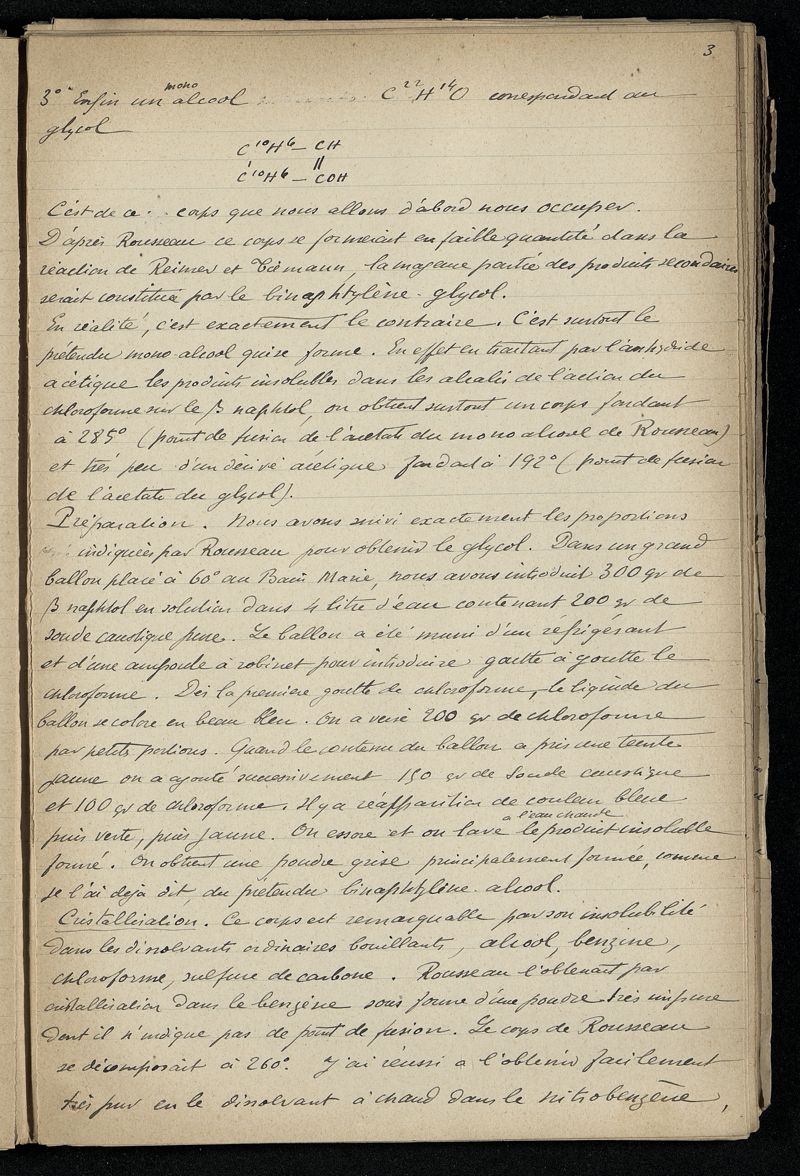 3
3° Enfin un mono alcool C²²H¹⁴O correspondant au
glycol
C¹⁰H⁶ — CH
C¹⁰H⁶ — COH
C'est de ce corps que nous allons d'abord nous occuper.
D'après Rousseau ce corps se formerait en faible quantité dans la
réaction de Reimer et Tiemann, la majeure partie des produits secondaires
serait constituée par le binaphtylène-glycol.
En réalité, c'est exactement le contraire. C'est surtout le
prétendu mono-alcool qui se forme. En effet en traitant par l'anhydride
acétique les produits insolubles dans les alcalis de l'action du
chloroforme sur le β naphtol, on obtient surtout un corps fondant
à 285° (point de fusion de l'acétate du mono alcool de Rousseau)
et très peu d'un dérivé acétique fondant à 192° (point de fusion
de l'acétate du glycol).
Préparation. Nous avons suivi exactement les proportions
indiquées par Rousseau pour obtenir le glycol. Dans un grand
ballon placé à 60° au Bain Marie, nous avons introduit 300 gr de
β naphtol en solution dans 4 litre d'eau contenant 200 gr de
soude caustique pure. Le ballon a été muni d'un réfrigérant
et d'une ampoule à robinet pour introduire goutte à goutte le
chloroforme. Dès la première goutte de chloroforme, le liquide du
ballon se colore en beau bleu. On a versé 200 gr de chloroforme
par petits portions. Quand le contenu du ballon a pris une teinte
jaune on a ajouté successivement 150 gr de Soude caustique
et 100 gr de chloroforme. Il y a réapparition de couleur bleue
puis verte, puis jaune. On essore et on lave à l'eau chaude le produit insoluble
formé. On obtient une poudre grise principalement formée, comme
je l'ai déjà dit, du prétendu binaphtylène-alcool.
Cristallisation. Ce corps est remarquable par son insolubilité
dans les dissolvants ordinaires bouillants, alcool, benzine,
chloroforme, sulfure de carbone. Rousseau l'obtenait par
cristallisation dans le benzène sous forme d'une poudre très impure
dont il n'indique pas de point de fusion. Le corps de Rousseau
se décomposait à 260°. J'ai réussi a l'obtenir facilement
très pur en le dissolvant à chaud dans le nitrobenzène,